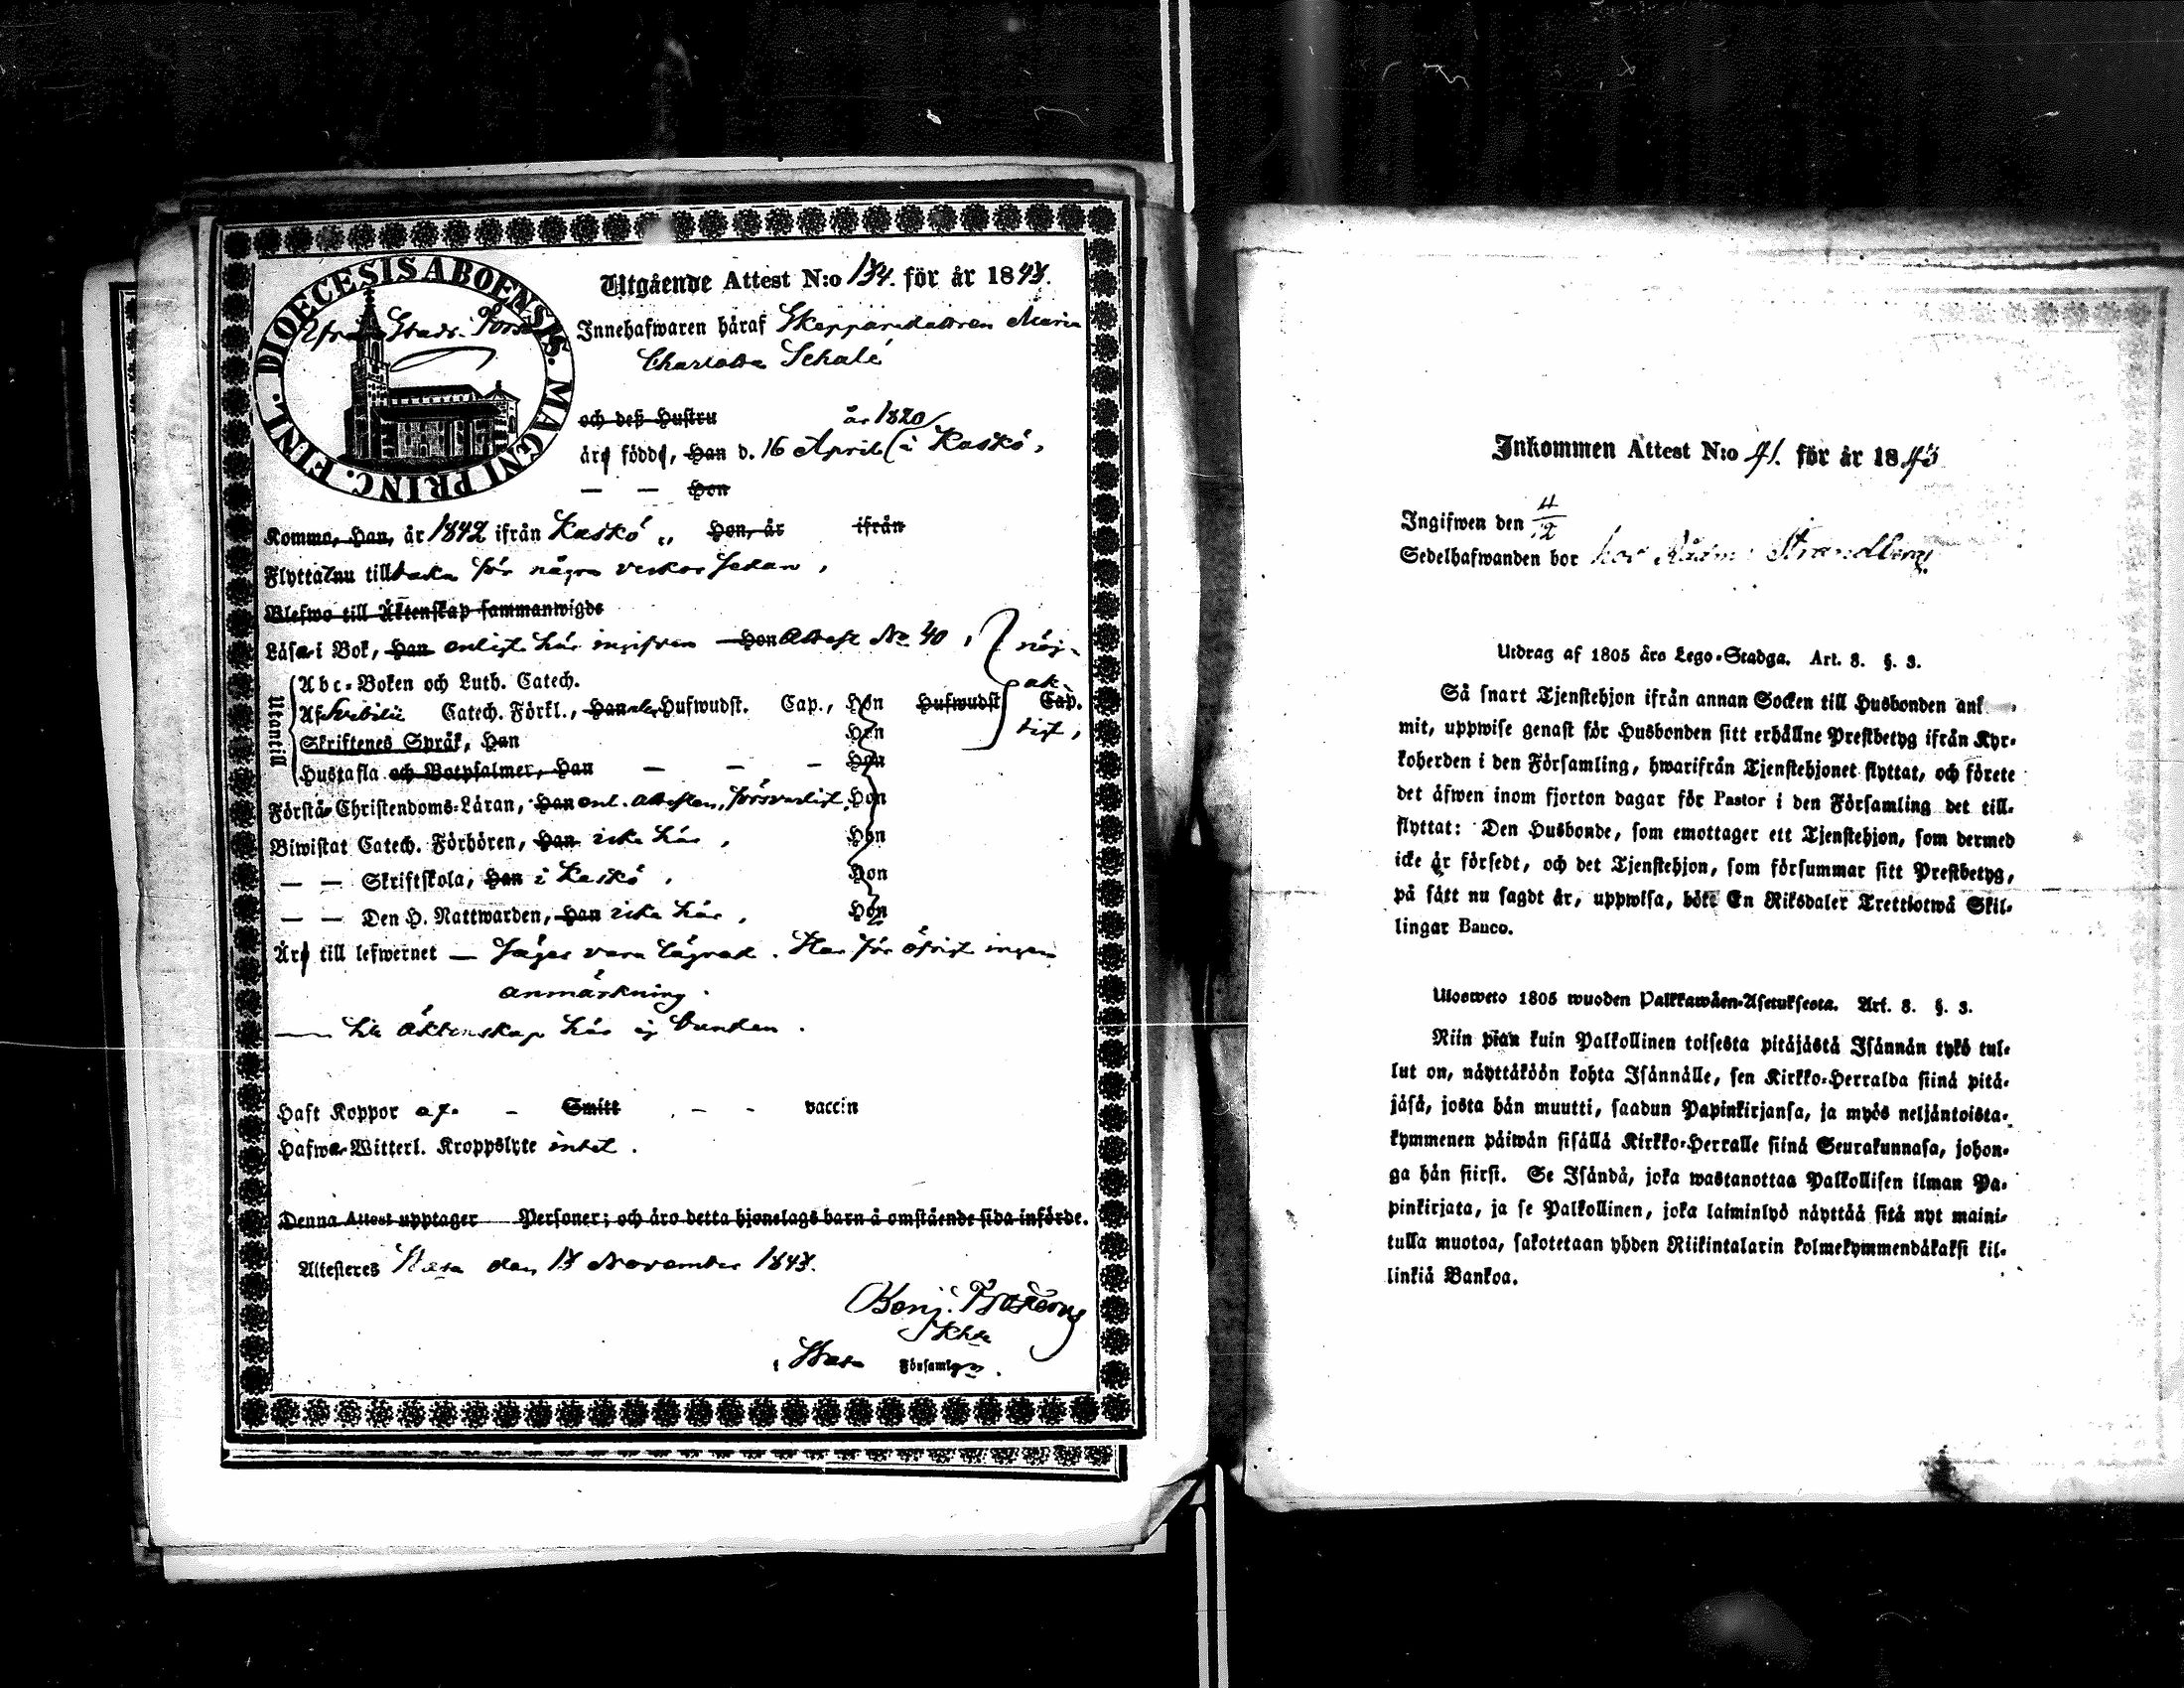 DIOECESIS ABOENSIS. MAGNI PRINC. FINL.
Utgående Attest N:o 134. för år 1843.
Innehafwaren häraf Skepparedottren Maria
Charlotta Schalé
och deß Hustru år 1820
äro födde, Han d. 16 April i Kaskö,
— — Hon
Kommo, Han, år 1842 ifrån Kaskö „ Hon, år ifrån
Flytta nu tillbaka för några veckor sedan,
Blefwo till Äktenskap sammanwigde
Läsa i Bok, Han enligt här ingifven Hon Attest No 40, nöj-
Utantill
Abc-Boken och Luth. Catech. ak-
Af Svebilii Catech. Förkl., Han alla Hufwudst. Cap., Hon Hufwudst Cap.
tigt,
Skriftenes Språk, Han Hon
Hustafla och Botpsalmer, Han — — — Hon
Förstå Christendoms-Läran, Han enl. attesten, försvarligt, Hon
Biwistat Catech. Förhören, Han icke här, Hon
— — Skriftskola, Han i Kaskö, Hon
— — Den H. Nattwarden, Han icke här, Hon
Äro till lefwernet — säges vara lägrad. Har för öfrigt ingen
anmärkning.
— till äktenskap här ej bunden.
Haft Koppor af - Smitt - - vaccin
Hafwa Witterl. Kroppslyte intet.
Denna Attest upptager Personer; och äro detta hjonelags barn å omstående sida införde.
Attesteres Wasa den 13 November 1843.
Benj.
i Wasa Församlgn.
Inkommen Attest N:o 41. för år 1843
Ingifwen den 4/12
Sedelhafwanden bor hos Rådm: Strandberg
Utdrag af 1805 års Lego-Stadga. Art. 3. §. 3.
Så snart Tjenstehjon ifrån annan Socken till Husbonden ank
mit, uppwise genast för Husbonden sitt erhållne Prestbetyg ifrån Kyr-
koherden i den Församling, hwarifrån Tjenstehjonet flyttat, och förete
det äfwen inom fjorton dagar för Pastor i den Församling det till-
flyttat: Den Husbonde, som emottager ett Tjenstehjon, som dermed
icke är försedt, och det Tjenstehjon, som försummar sitt Prestbetyg,
på sätt nu sagdt är, uppwisa, böte En Riksdaler Trettiotwå Skil-
lingar Banco.
Ulosweto 1805 wuoden Palkkawäen-Asetuksesta. Art. 3. §. 3.
Niin pian kuin Palkollinen toisesta pitäjästä Isännän tykö tul-
lut on, näyttäköön kohta Isännälle, sen Kirkko-Herralda siinä pitä-
jäsä, josta hän muutti, saadun Papinkirjansa, ja myös neljäntoista-
kymmenen päiwän sisällä Kirkko-Herralle siinä Seurakunnasa, johon-
ga hän siirsi. Se Isändä, joka wastanottaa Palkollisen ilman Pa-
pinkirjata, ja se Palkollinen, joka laiminlyö näyttää sitä nyt maini-
tulla muotoa, sakotetaan yhden Riikintalarin kolmekymmendäkaksi kil-
linkiä Bankoa.